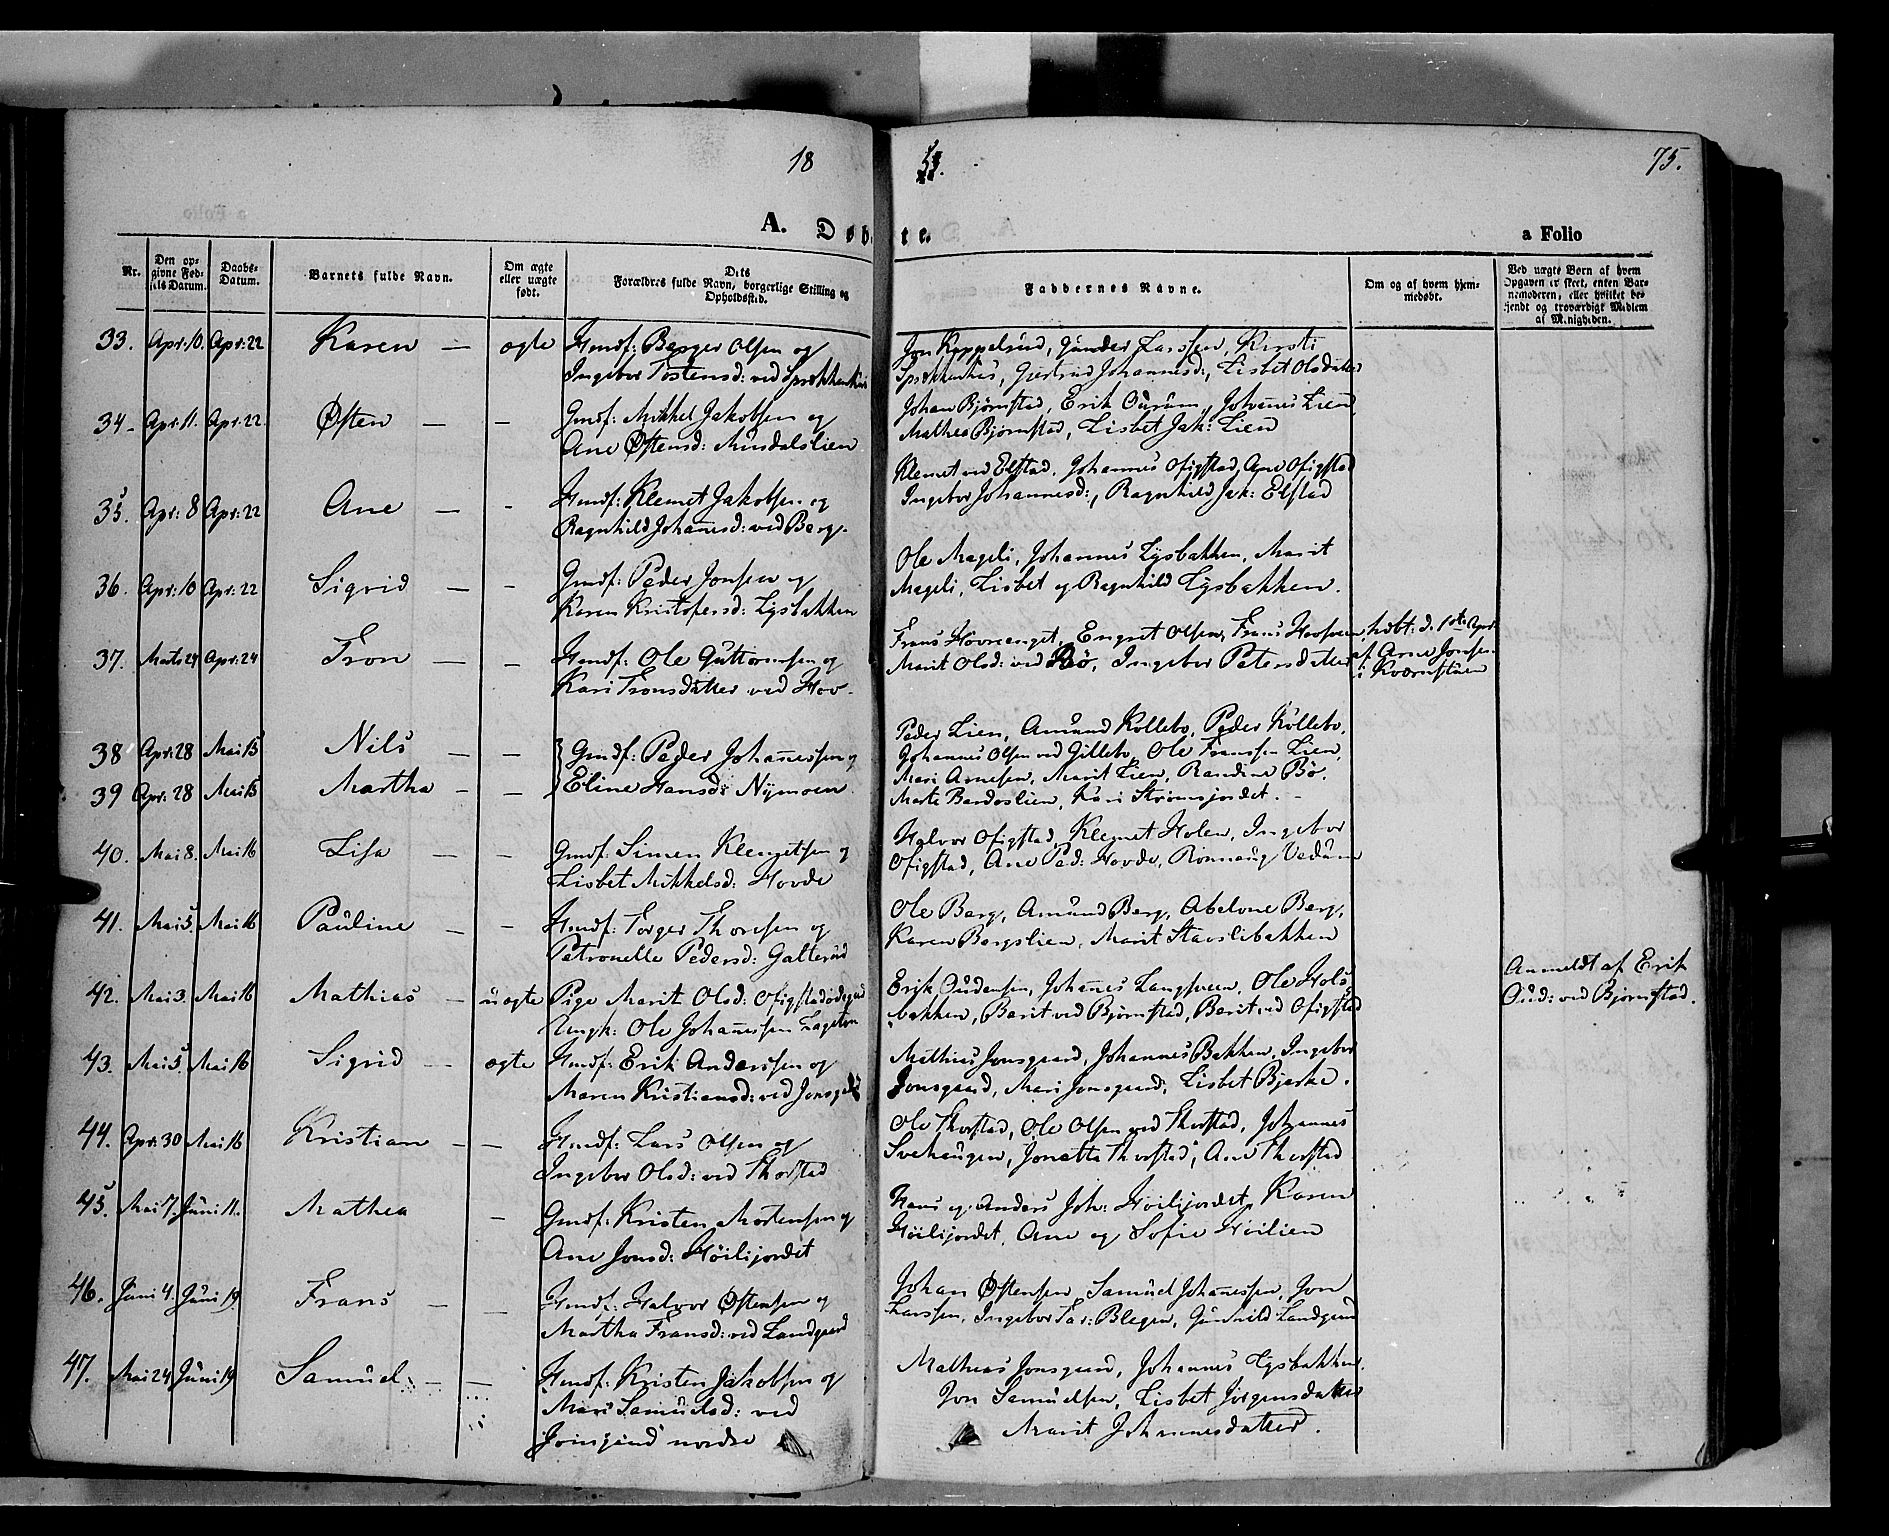 18
75.
A. Døbte.
a Folio
Nr.
Den opgivne Fødsels Datum.
Daabs-Datum.
Barnets fulde Navn.
Om ægte eller uægte født.
Dets Forældres fulde Navn, borgerlige Stilling og Opholdssted.
Faddernes Navne.
Om og af hvem hjemmedøbt.
Ved uægte Børn af hvem Opgaven er skeet, enten Barnemoderen, eller hvilket bekjendt og troværdigt Medlem af Menigheden.
33. Apr: 10. Apr: 22 Karen — ægte Hmdf: Berger Olsen og
Ingebor Tostensd: ved
Jon Koppelrud, Gunder Larssen, Kirsti
Gjertrud Johannesd:, Lisbet Olsdatter
34. Apr: 11. Apr: 22. Østen — — Gmdf: Mikkel Jakobsen og
Ane Østensd: Musdalslien
Johan Bjørnstad, Erik Ourum, Johannes Lien
Mathea Bjørnstad, Lisbet Jak: Lien
35. Apr: 8 Apr: 22 Ane — — Hmdf: Klemet Jakobsen og
Ragnhild Johannesd: ved Berg.
Klemet ved Elstad, Johannes Ofigstad, Ane Ofigstad
Ingebor Johannesd:, Ragnhild Jak: Elstad
36. Apr: 10 Apr: 22 Sigrid — — Gmdf: Peder Jonsen og
Karen Kristofersd: Lysbakken
Ole Mageli, Johannes Lysbakken, Marit
Mageli, Lisbet og Ragnhild Lysbakken.
37. Marts 29 Apr: 24 Tron — — Hmdf: Ole Guttormsen og
Kari Tronsdatter ved Hov.
Frans Hovrenget, Engret Olsen, Frans
Marit Olsd: ved Bø, Ingebor Petersdatter
hdbt: d. 1ste Apr:
af Arne Jonsen
i Kværnstuen
38 Apr: 28 Mai 15 Nils — — Gmdf: Peder Johannessen og
39 Apr: 28 Mai 15 Martha — — Eline Hansd: Nymoen
Peder Lien, Amund Kollebo, Peder Kollebo,
Johannes Olsen ved Gillebo, Ole Franssen Lien,
Mari Arnesen, Marit Lien, Randine Bø,
Marte Bardoslien, Kari Strømsjordet.
40. Mai 8. Mai 16 Lisa — — Gmdf: Simen Klemetsen og
Lisbet Mikkelsd: Hovde
Halvor Ofigstad, Klemet Holen, Ingebor
Ofigstad, Ane Ped: Hovde, Rønnaug Vedum
41. Mai 5. Mai 16 Pauline — — Hmdf: Torger Thoresen og
Petronelle Pedersd: Galterud
Ole Berg, Amund Berg, Abelone Berg,
Karen Bergslien, Marit Stavslibakken
42. Mai 3. Mai 16 Mathias — uægte Pige Marit Olsd: Ofigstadødegard
Ungk: Ole Johannessen
Erik Oudensen, Johannes Langsveen, Ole Hols-
bakken, Barit ved Bjørnstad, Berit ved Ofigstad
Anmeldt af Erik
Oud: ved Bjørnstad.
43. Mai 5. Mai 16 Sigrid — ægte Hmdf: Erik Anderssen og
Maren Kristiansd: ved Jonsgard
Mathias Jonsgaard, Johannes Bakken, Ingebor
Jonsgaard, Mari Jonsgaard, Lisbet Bjerke.
44. Apr: 30 Mai 16 Kristian — — Hmdf: Lars Olsen og
Ingebor Olsd: ved Thorstad
Ole Thorstad, Ole Olsen ved Thorstad, Johannes
Svehaugen, Jonette Thorstad, Ane Thorstad
45. Mai 7. Juni 11. Mathea — Gmdf: Kristen Mortensen og
Ane Jonsd: Høilijordet
Hans og Anders Joh: Høilijordet, Karen
Høilijordet, Ane og Sofie Høilien
46. Juni 4. Juni 19 Frans — — Hmdf: Halvor Østensen og
Martha Fransd: ved Landgaard
Johan Østensen, Samuel Johannessen, Jon
Larssen, Ingebor Blegen, Gunhild Landgaard
47. Mai 24 Juni 19 Samuel — — Hmdf: Kristen Jakobsen og
Mari Samuelsd: ved
nordre
Mathias Jonsgaard, Johannes Lysbakken
Jon Samuelsen, Lisbet Jørgensdatter
Marit Johannesdatter.